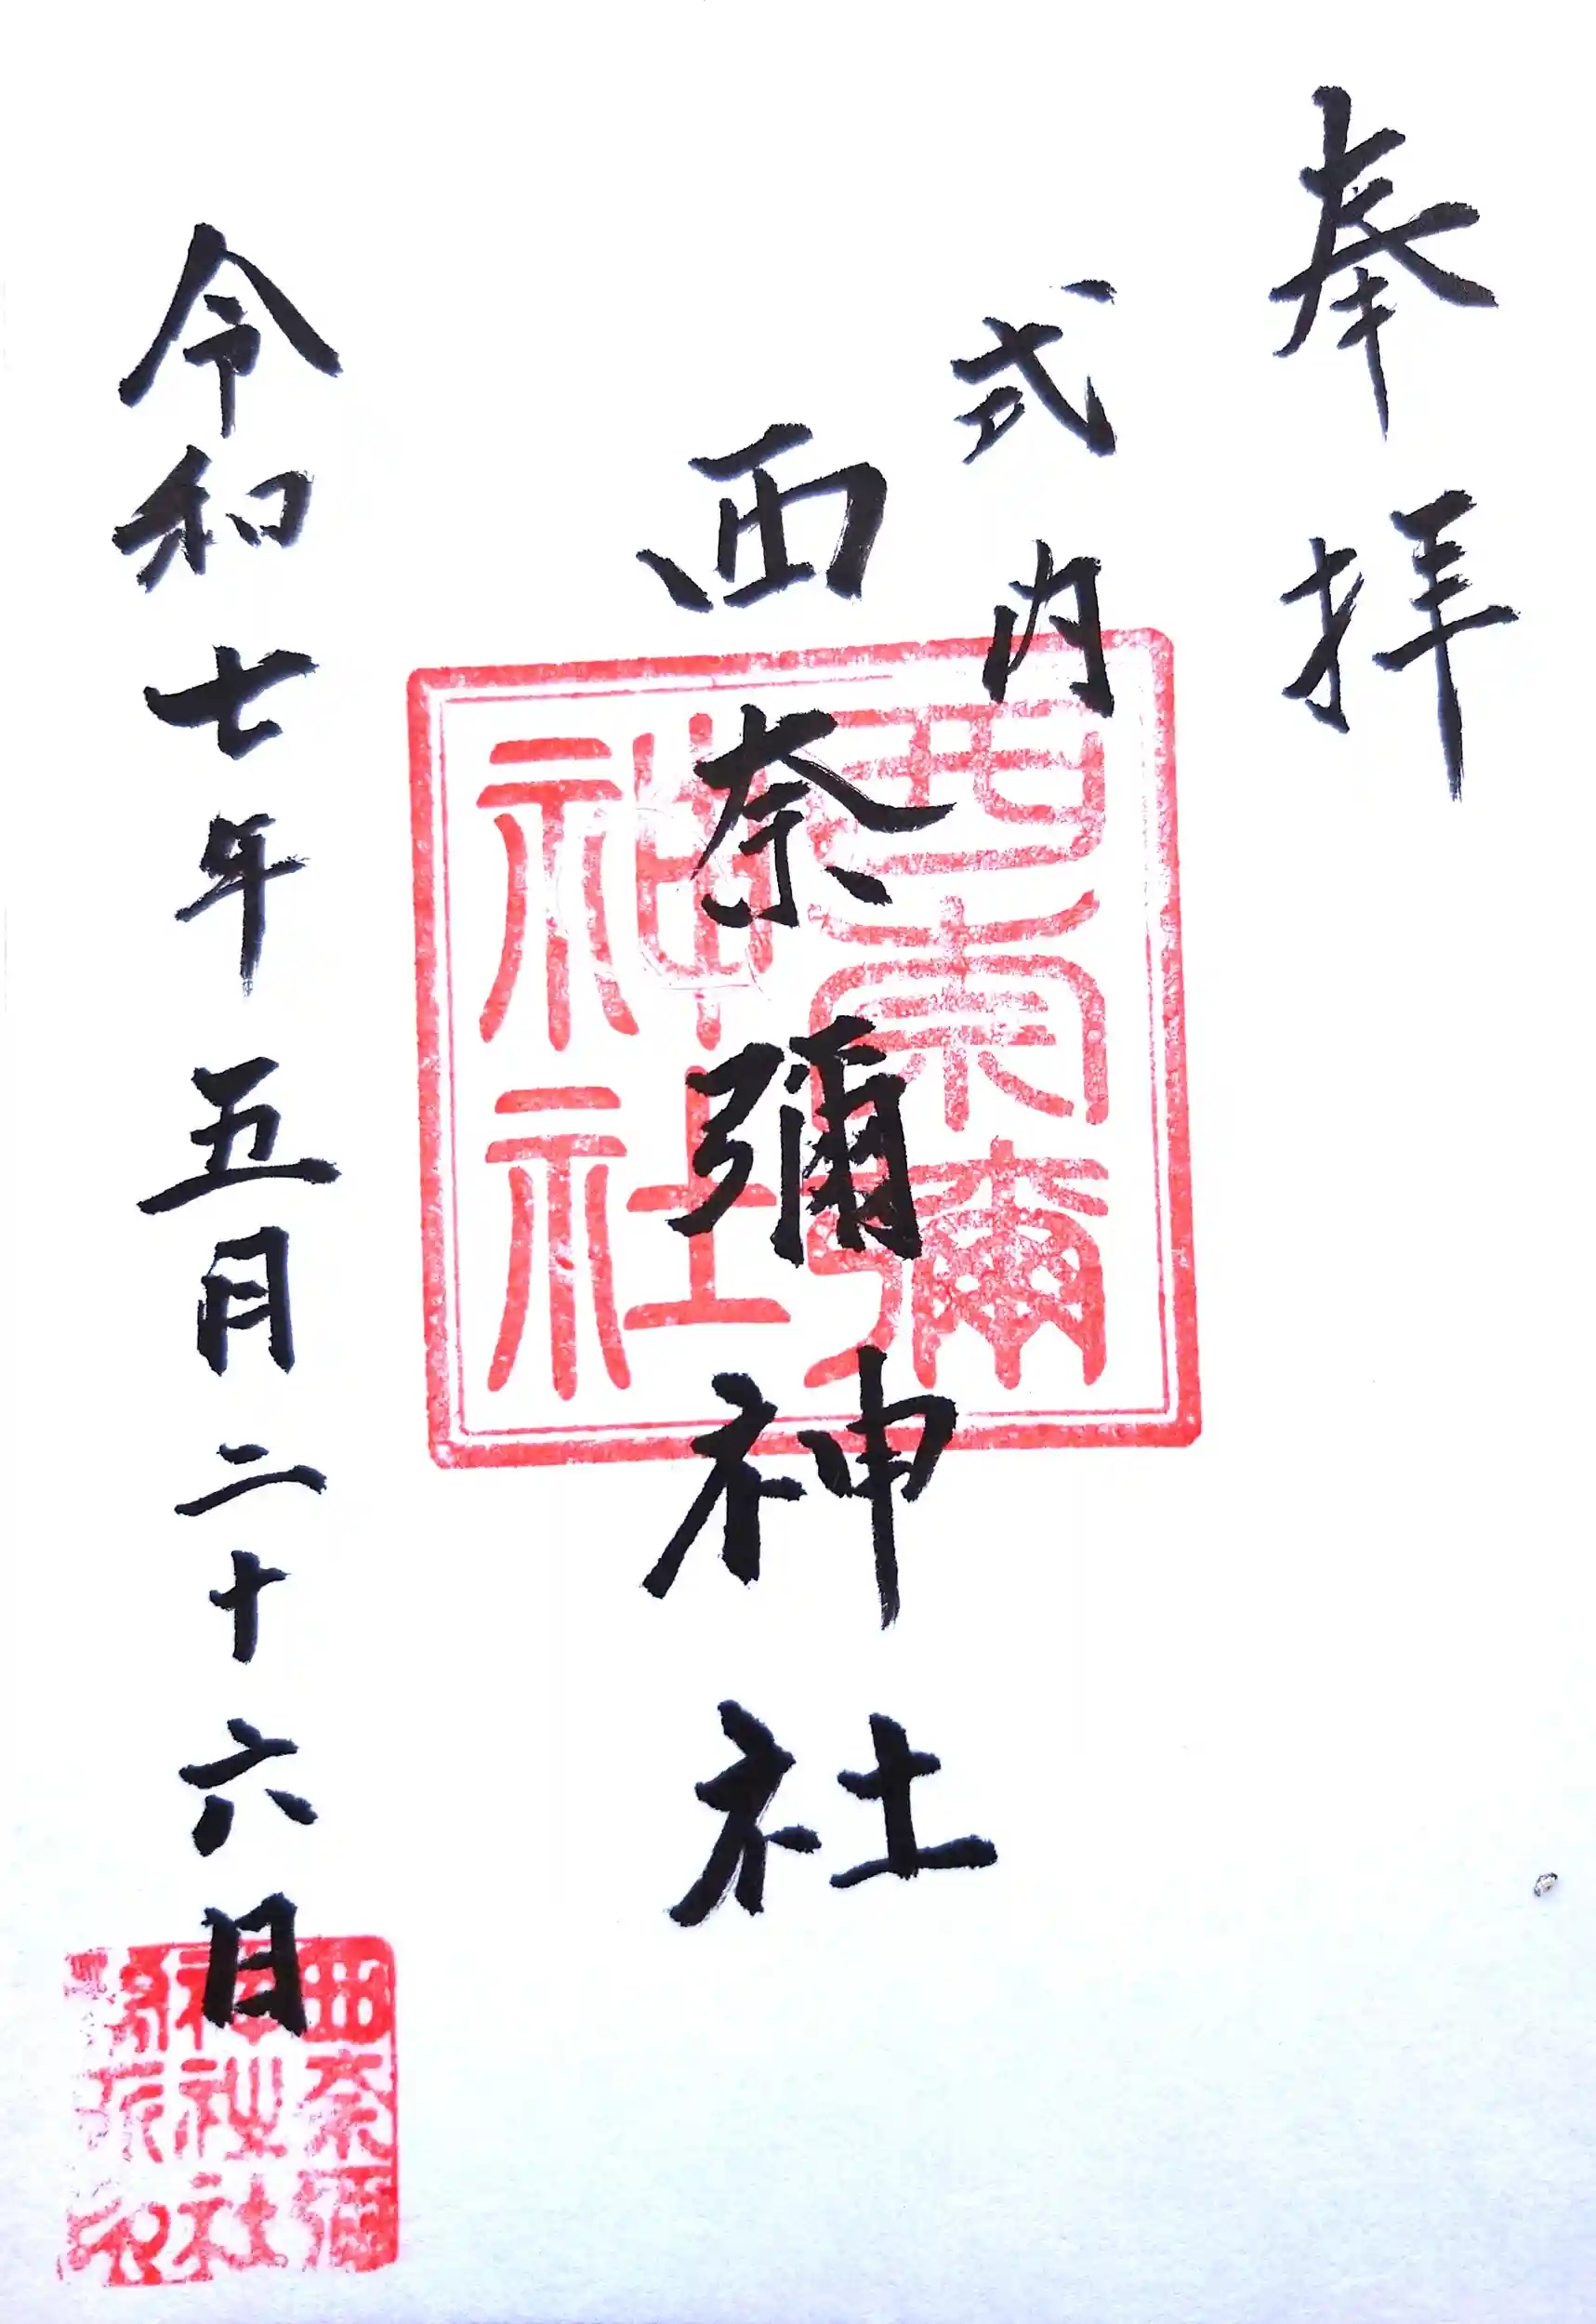 奉拝
式内
西奈彌神社
西奈彌
神社
令和七年五月二十六日
西奈彌
神社社